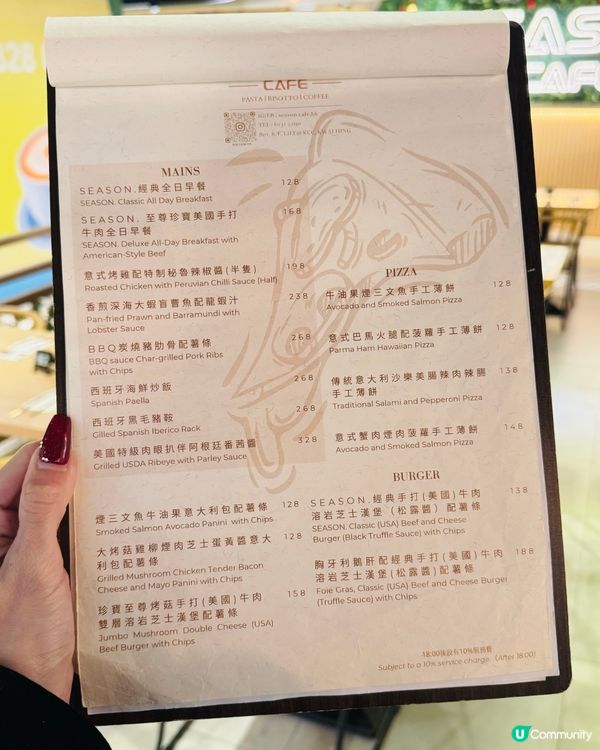 CAFE
PASTA | RISOTTO | COFFEE
MAINS
SEASON.經典全日早餐 128
SEASON. Classic All Day Breakfast
SEASON. 至尊珍寶美國手打 168
牛肉全日早餐
SEASON. Deluxe All-Day Breakfast with
American-Style Beef
意式烤雞配特制秘魯辣椒醬(半隻) 198
Roasted Chicken with Peruvian Chilli Sauce (Half)
香煎深海大蝦盲曹魚配龍蝦汁 238
Pan-fried Prawn and Barramundi with
Lobster Sauce
BBQ炭燒豬肋骨配薯條 268
BBQ sauce Char-grilled Pork Ribs
with Chips
西班牙海鮮炒飯 268
Spanish Paella
西班牙黑毛豬鞍 268
Gilled Spanish Iberico Rack
美國特級肉眼扒伴阿根廷番茜醬 328
Grilled USDA Ribeye with Parley Sauce
煙三文魚牛油果意大利包配薯條 128
Smoked Salmon Avocado Panini with Chips
大烤菇雞柳煙肉芝士蛋黃醬意大 128
利包配薯條
Grilled Mushroom Chicken Tender Bacon
Cheese and Mayo Panini with Chips
珍寶至尊烤菇手打(美國)牛肉 158
雙層溶岩芝士漢堡配薯條
Jumbo Mushroom Double Cheese (USA)
Beef Burger with Chips
PIZZA
牛油果煙三文魚手工薄餅 128
Avocado and Smoked Salmon Pizza
意式巴馬火腿配菠蘿手工薄餅 128
Parma Ham Hawaiian Pizza
傳統意大利沙樂美腸辣肉辣腸 138
手工薄餅
Traditional Salami and Pepperoni Pizza
意式蟹肉煙肉菠蘿手工薄餅 148
Avocado and Smoked Salmon Pizza
BURGER
SEASON.經典手打(美國)牛肉 138
溶岩芝士漢堡（松露醬）配薯條
SEASON. Classic (USA) Beef and Cheese
Burger (Black Truffle Sauce) with Chips
匈牙利鵝肝配經典手打(美國)牛肉 188
溶岩芝士漢堡(松露醬)配薯條
Foie Gras, Classic (USA) Beef and Cheese Burger
(Truffle Sauce) with Chips
18:00後設有10%服務費
Subject to a 10% service charge. (After 18:00)
U Community